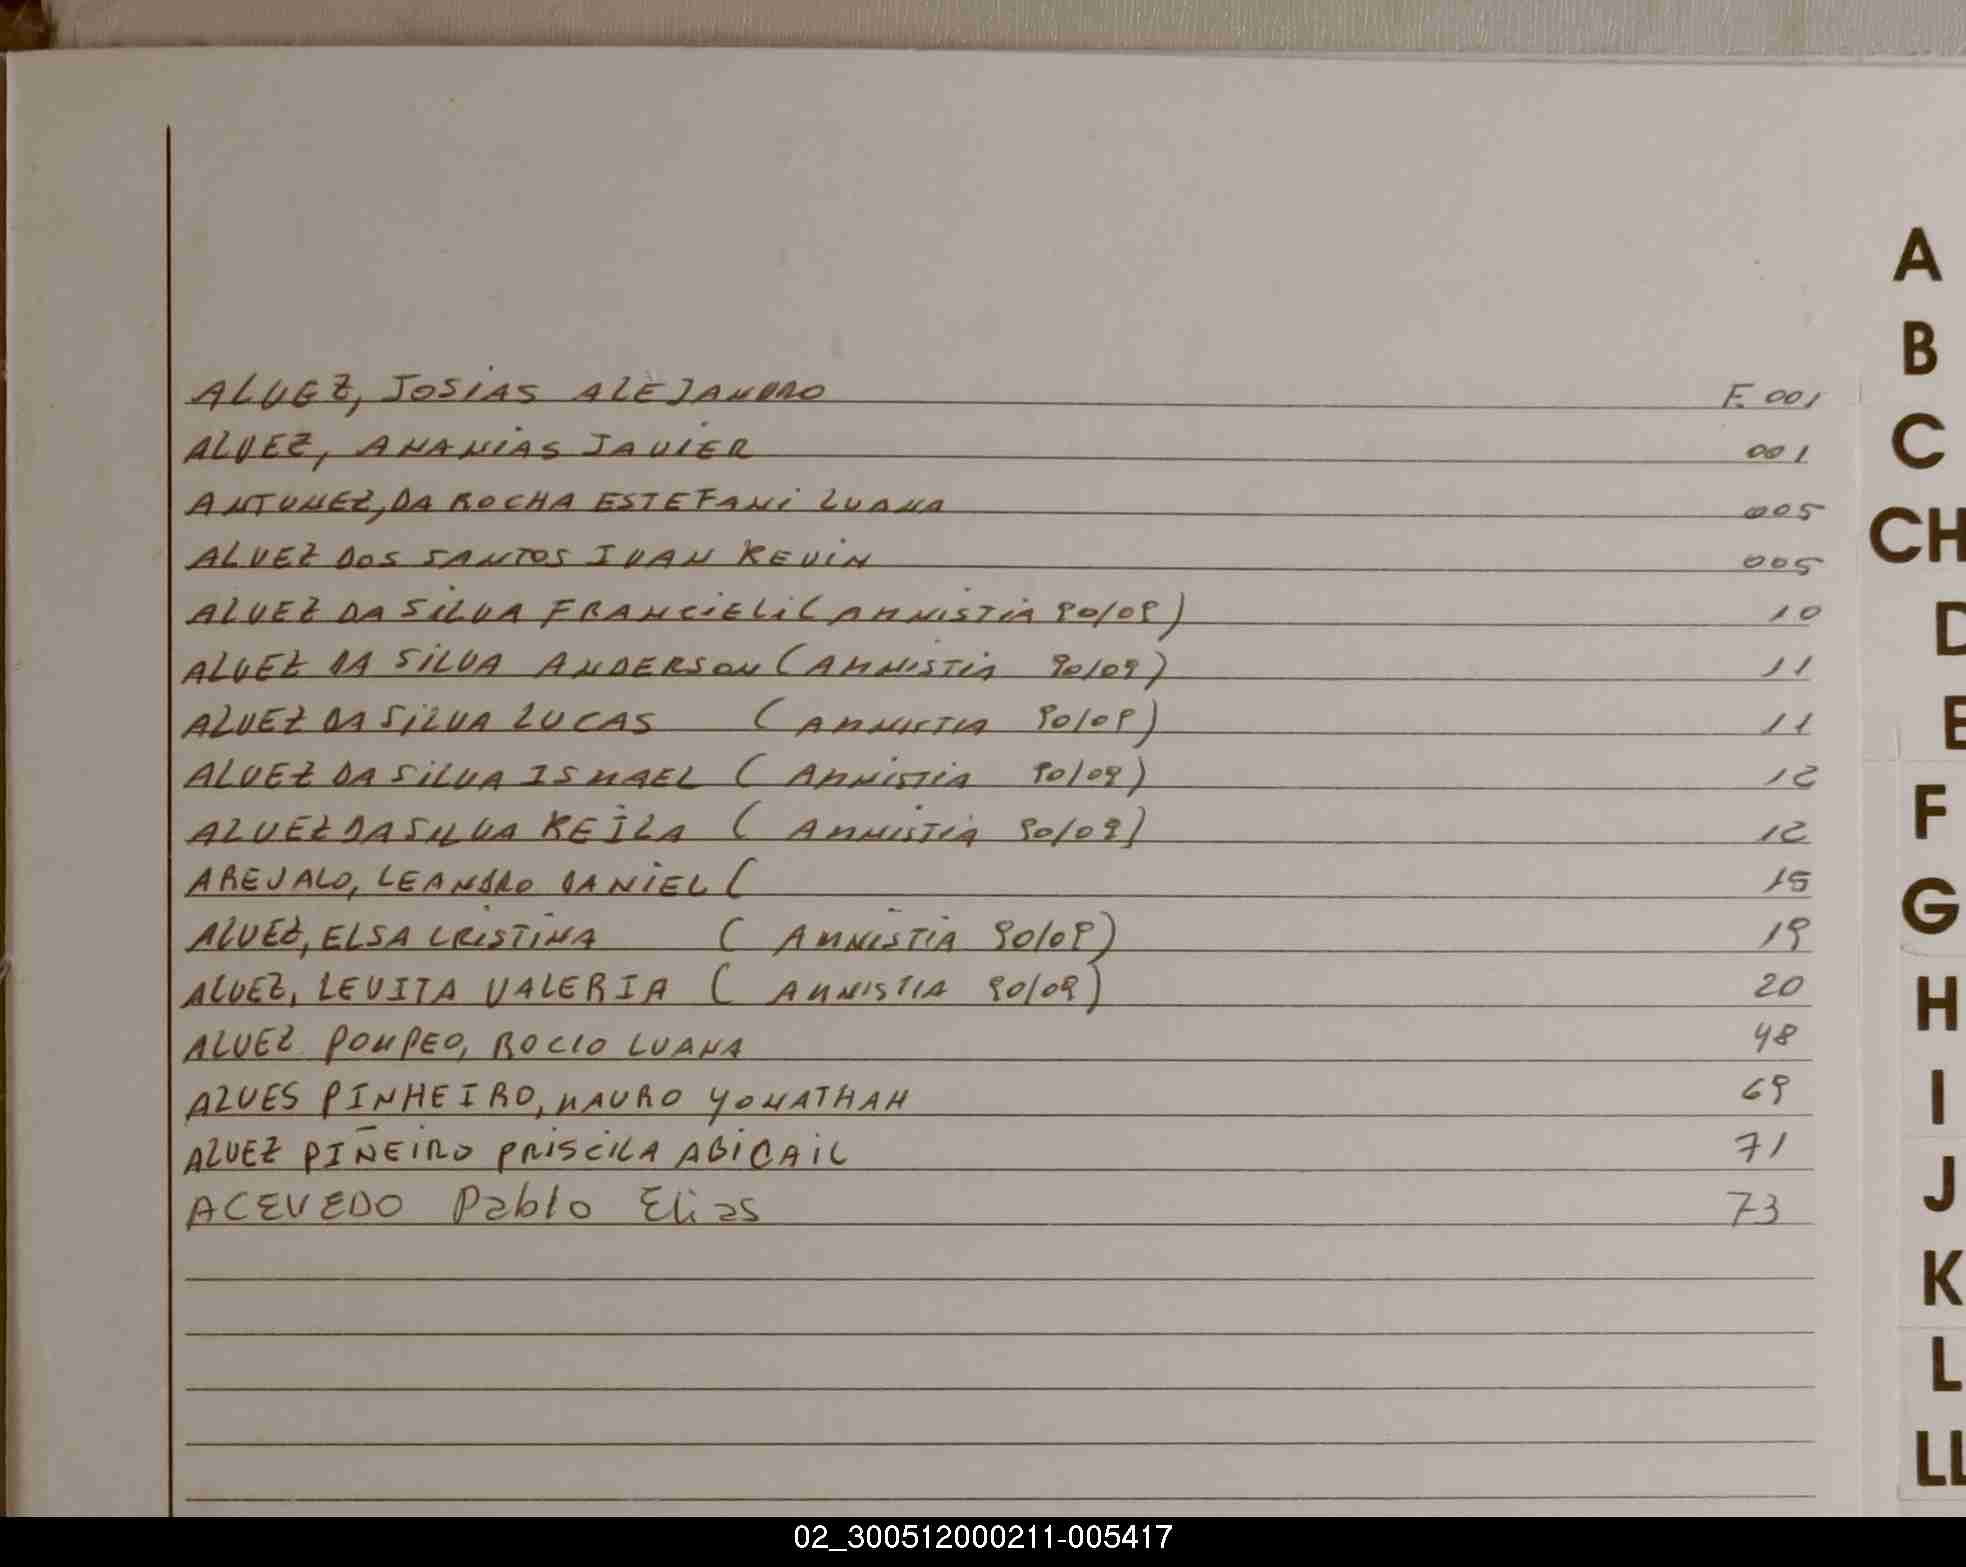 ALVEZ, JOSIAS ALEJANDRO F. 001
ALVEZ, ANANIAS JAVIER 001
ANTUNEZ, DA ROCHA ESTEFANI LUANA 005
ALVEZ DOS SANTOS IVAN KEVIN 005
ALVEZ DA SILVA FRANCIELI (AMNISTIA 90/09) 10
ALVEZ DA SILVA ANDERSON (AMNISTIA 90/09) 11
ALVEZ DA SILVA LUCAS (AMNISTIA 90/09) 11
ALVEZ DA SILVA ISMAEL (AMNISTIA 90/09) 12
ALVEZ DA SILVA KEILA (AMNISTIA 90/09) 12
AREVALO, LEANDRO DANIEL ( 15
ALVEZ, ELSA CRISTINA (AMNISTIA 90/09) 19
ALVEZ, LEVITA VALERIA (AMNISTIA 90/09) 20
ALVEZ POMPEO, ROCIO LUANA 48
ALVES PINHEIRO, MAURO YONATHAN 69
ALVEZ PIÑEIRO PRISCILA ABIGAIL 71
ACEVEDO Pablo Elias 73
A
B
C
CH
D
E
F
G
H
I
J
K
L
LL
02_300512000211-005417